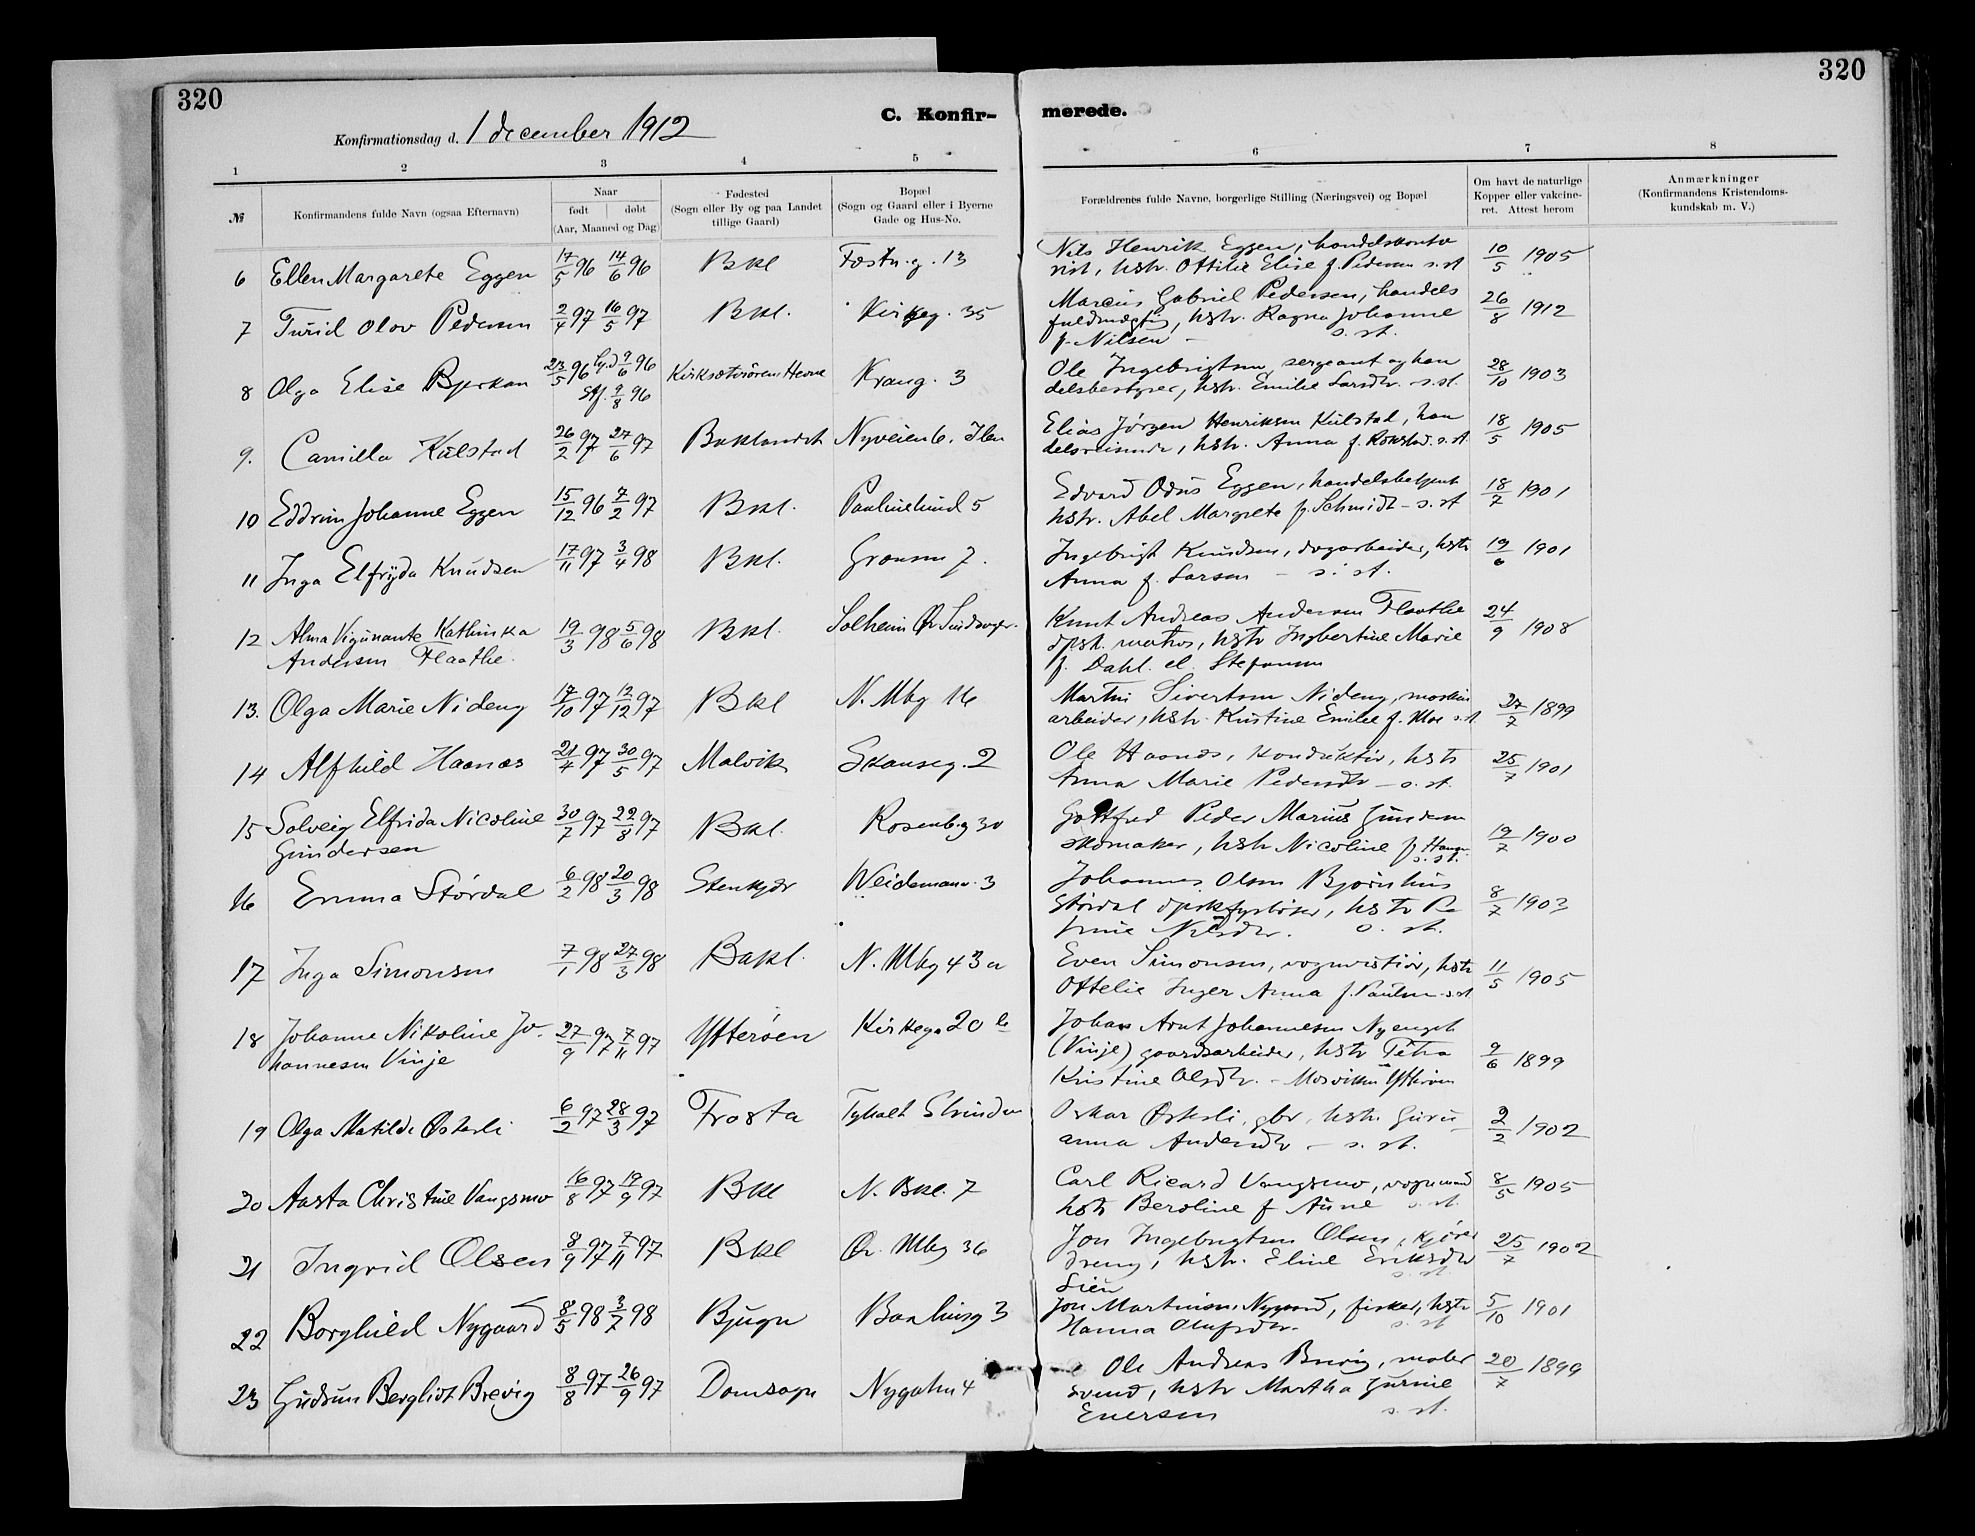 320
320
C. Konfir-
merede.
Konfirmationsdag d. 1 december 1912
1 2 3 4 5 6 7 8
№
Konfirmandens fulde Navn (ogsaa Efternavn)
Naar
født døbt
(Aar, Maaned og Dag)
Fødested
(Sogn eller By og paa Landet
tillige Gaard)
Bopæl
(Sogn og Gaard eller i Byerne
Gade og Hus-No.
Forældrenes fulde Navne, borgerlige Stilling (Næringsvei) og Bopæl
Om havt de naturlige
Kopper eller vakcine-
ret. Attest herom
Anmærkninger
(Konfirmandens Kristendoms-
kundskab m. V.)
6 Ellen Margarete Eggen 17/5 96 14/6 96 Bkl Fæstn.g. 13
Nils Henrik Eggen, handelskonto
rist, hstr. Ottilie Elise f. Pedersen s. st 10/5 1905
7 Turid Olov Pedersen 2/4 97 16/5 97 Bkl. Kirkeg. 35
Marcus Gabriel Pedersen, handels
fuldmægtig, hstr. Ragna Johanne
f. Nilsen — s. st. 26/8 1912
8 Olga Elise Bjerkan 23/5 96 hj.d 9/6 96 Kirksæterøren Hevne Krang. 3
stf. 9/8 96
Ole Ingebrigtsen, sergeant og han
delsbestyrer, hstr. Emilie Larsdtr. s. st. 28/10 1903
9. Camilla Kulstad 26/2 97 27/6 97 Baklandet Nyveien 6. Ilen
Elias Jørgen Henriksen Kulstad, han
delsreisende, hstr. Anna f. Rokstad. s. st 18/5 1905
10 Eddrun Johanne Eggen 15/12 96 7/2 97 Bkl. Paulinelund 5
Edvard Odus Eggen, handelsbetjent
hstr. Abel Margrete f. Schmidt – s. st 18/7 1901
11 Inga Elfryda Knudsen 17/11 97 3/4 98 Bkl. Grænsen 7.
Ingebrigt Knudsen, dagarbeider, hstr
Anna f. Larsen – s. st. 19/6 1901
12 Alma Kathinka 19/3 98 5/6 98 Bkl. Solheim
Andersen Flaathe.
Knut Andreas Andersen Flaathe
dpsk. matros, hstr Ingbertine Marie
f. Dahl. el. Stefansen 24/9 1908
13. Olga Marie Nideng 17/10 97 12/12 97 Bkl N. Mbg 16
Martin Sivertsen Nideng, maskin
arbeider, hstr. Kristine Emilie f. Moe s. st 27/7 1899
14 Alfhild Haanæs 21/4 97 30/5 97 Malvik Skanseg. 2
Ole Haanæs, konduktør, hstr
Anna Marie Pedersdtr – s. st. 25/7 1901
15 Solveig Elfrida Nicoline 30/7 97 22/8 97 Bkl. Rosenb.g 30
Gundersen
Gottfred Peder Marius Gundersen
skomaker, hstr Nicoline f. Haugen
s. st. 19/7 1900
16 Emma Stördal 6/2 98 20/3 98 Stenkjær Weidemansv. 3
Johannes Olsen Bjørnhus
Stördal dpskfyrbøter, hstr Pe
Nilsdtr. s. st. 8/7 1903
17 Inga Simonsen 7/1 98 27/3 98 Bakl. N. Mbg 43 a
Even Simonsen, vognvisitør, hstr
Ottelie Inger Anna f. Paulsen s. st 11/5 1905
18 Johanne Nikoline Jo- 27/9 97 7/11 97 Ytterøen Kirkeg. 20 b
hannesen Vinje
Johan Arnt Johannesen Nyenget
(Vinje) gaardsarbeider, hstr Petra
Kristine Olsdtr. – Ytterøen 9/6 1899
19 Olga Matilde Østerli 6/2 97 28/3 97 Frosta Tyholt Strinden
Oskar Østerli, gbr, hstr. Guru-
anna Andersdtr – s. st. 2/2 1902
20 Aasta Christine Vangsmo 16/8 97 19/9 97 Bkl N. Bkl. 7
Carl Ricard Vangsmo, vognmand
hstr Beroline f Aune s. st. 8/5 1905
21 Ingrid Olsen 8/9 97 7/11 97 Bkl Øv. Mbg 36
Jon Ingebrigtsen Olsen, kjøre
dreng, hstr. Eline Eriksdtr
Lien s. st. 25/7 1902
22 Borghild Nygaard 8/5 98 3/7 98 Bjugn Baahusg 3
Jon Martinsen Nygaard, fisker, hstr
Hanna Olufsdtr. s. st 5/10 1901
23 Gudrun Bergliot Brevig 8/8 97 26/9 97 Domsogn Nygaten 4
Ole Andreas Brevig, maler
svend, hstr Martha Gurine
Enersen s. st. 20/7 1899